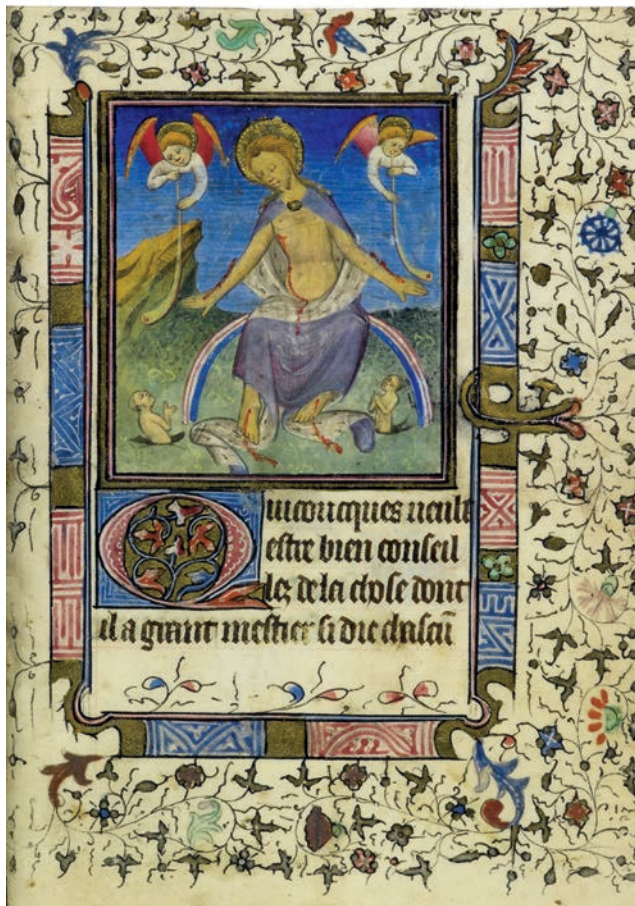 Quiconcques veult
estre bien conseil
lez de la chose dont
il a grant mestier si die chascū